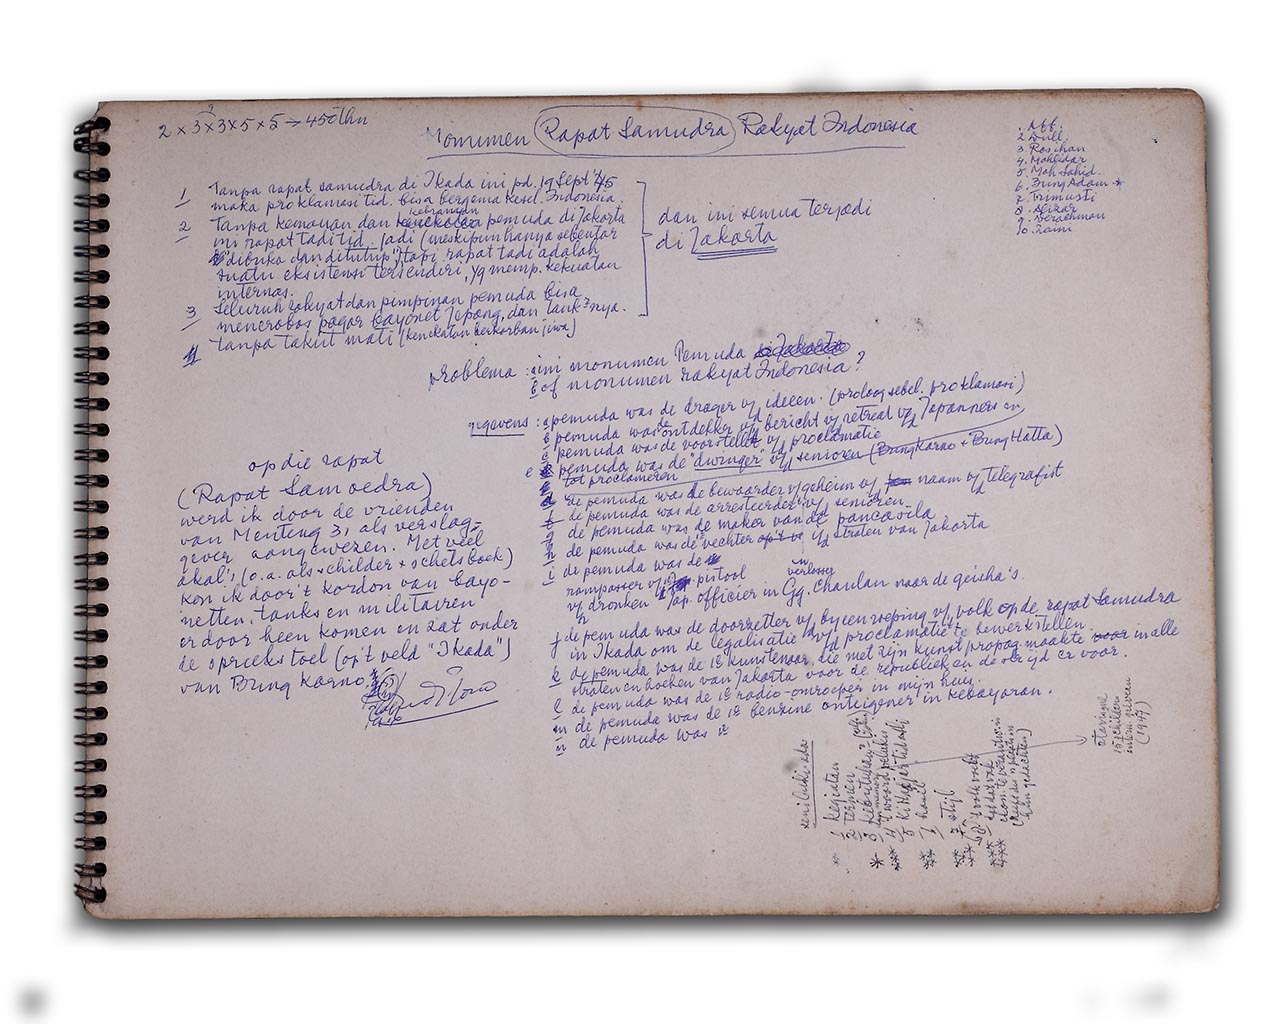 2 × 3 × 3 × 5 × 5 → 450 thn
Monumen Rapat Samudra Rakyat Indonesia
1 Tanpa rapat samudra di Ikada ini pd. 19 Sept '45
maka proklamasi tid. bisa bergema kesel. Indonesia
2 Tanpa kemauan dan keberanian pemuda di Jakarta
ini rapat tadi tid. jadi (meskipun hanya sebentar
"dibuka dan ditutup"), tapi rapat tadi adalah
suatu eksistensi tersendiri, yg memp. kekuatan
internas.
3 Seluruh rakyat dan pimpinan pemuda bisa
menerobos pagar bayonet Jepang, dan tank²nya.
tanpa takut mati (kenekatan berkorban jiwa)
dan ini semua terjadi
di Jakarta
1. Aff.
2 Dull.
3 Rosihan
4. Mohtidar
5. Moh Sahid.
6. Bung Adam
7. Trimusti
8. Nizar
9. Derachman
10. Zaini
problema : ini monumen Pemuda di Jakarta
b of monumen rakyat Indonesia?
gegevens : a pemuda was de drager v/d ideeen. (proloog sebel. proklamasi)
b pemuda was de ontdekker v/d bericht v/d retreat v/d Japanners en
c pemuda was de voorsteller v/d proclamatie
e pemuda was de "dwinger" v/d senioren (Bung Karno + Bung Hatta)
tot proclameren
d de pemuda was de bewaarder v/h geheim v/d naam v/d telegrafist
f de pemuda was de arresteerder v/d senioren.
g de pemuda was de maker van de pancasila
h de pemuda was de vechter op 't v/d straten van Jakarta
i de pemuda was de
pistool
v/d dronken Jap. officier in Gg. Chaulan naar de geisha's.
verlosser
j de pemuda was de doorzetter v/d byeenroeping v/h volk op de rapat Samudra
in Ikada om de legalisatie v/d proclamatie te bewerkstellen.
k de pemuda was de 1e kunstenaar, die met zijn kunst propag. maakte voor in alle
straten en hoeken van Jakarta voor de republiek en de strijd er voor.
l de pemuda was de 1e radio-omroeper in mijn huis.
m de pemuda was de 1e benzine onteigener in Kebayoran.
n de pemuda was 1e
op die rapat
(Rapat Samoedra)
werd ik door de vrienden
van Menteng 31, als verslag-
gever aangewezen. Met veel
akal's (o.a. als schilder + schetsboek)
kon ik door 't kordon van bayo-
netten, tanks en militairen
er door heen komen en zat onder
de spreekstoel (op 't veld "Ikada")
van Bung Karno.
seni lukis ada
1 kegiatan
2 termen
7 stijl
(1947)